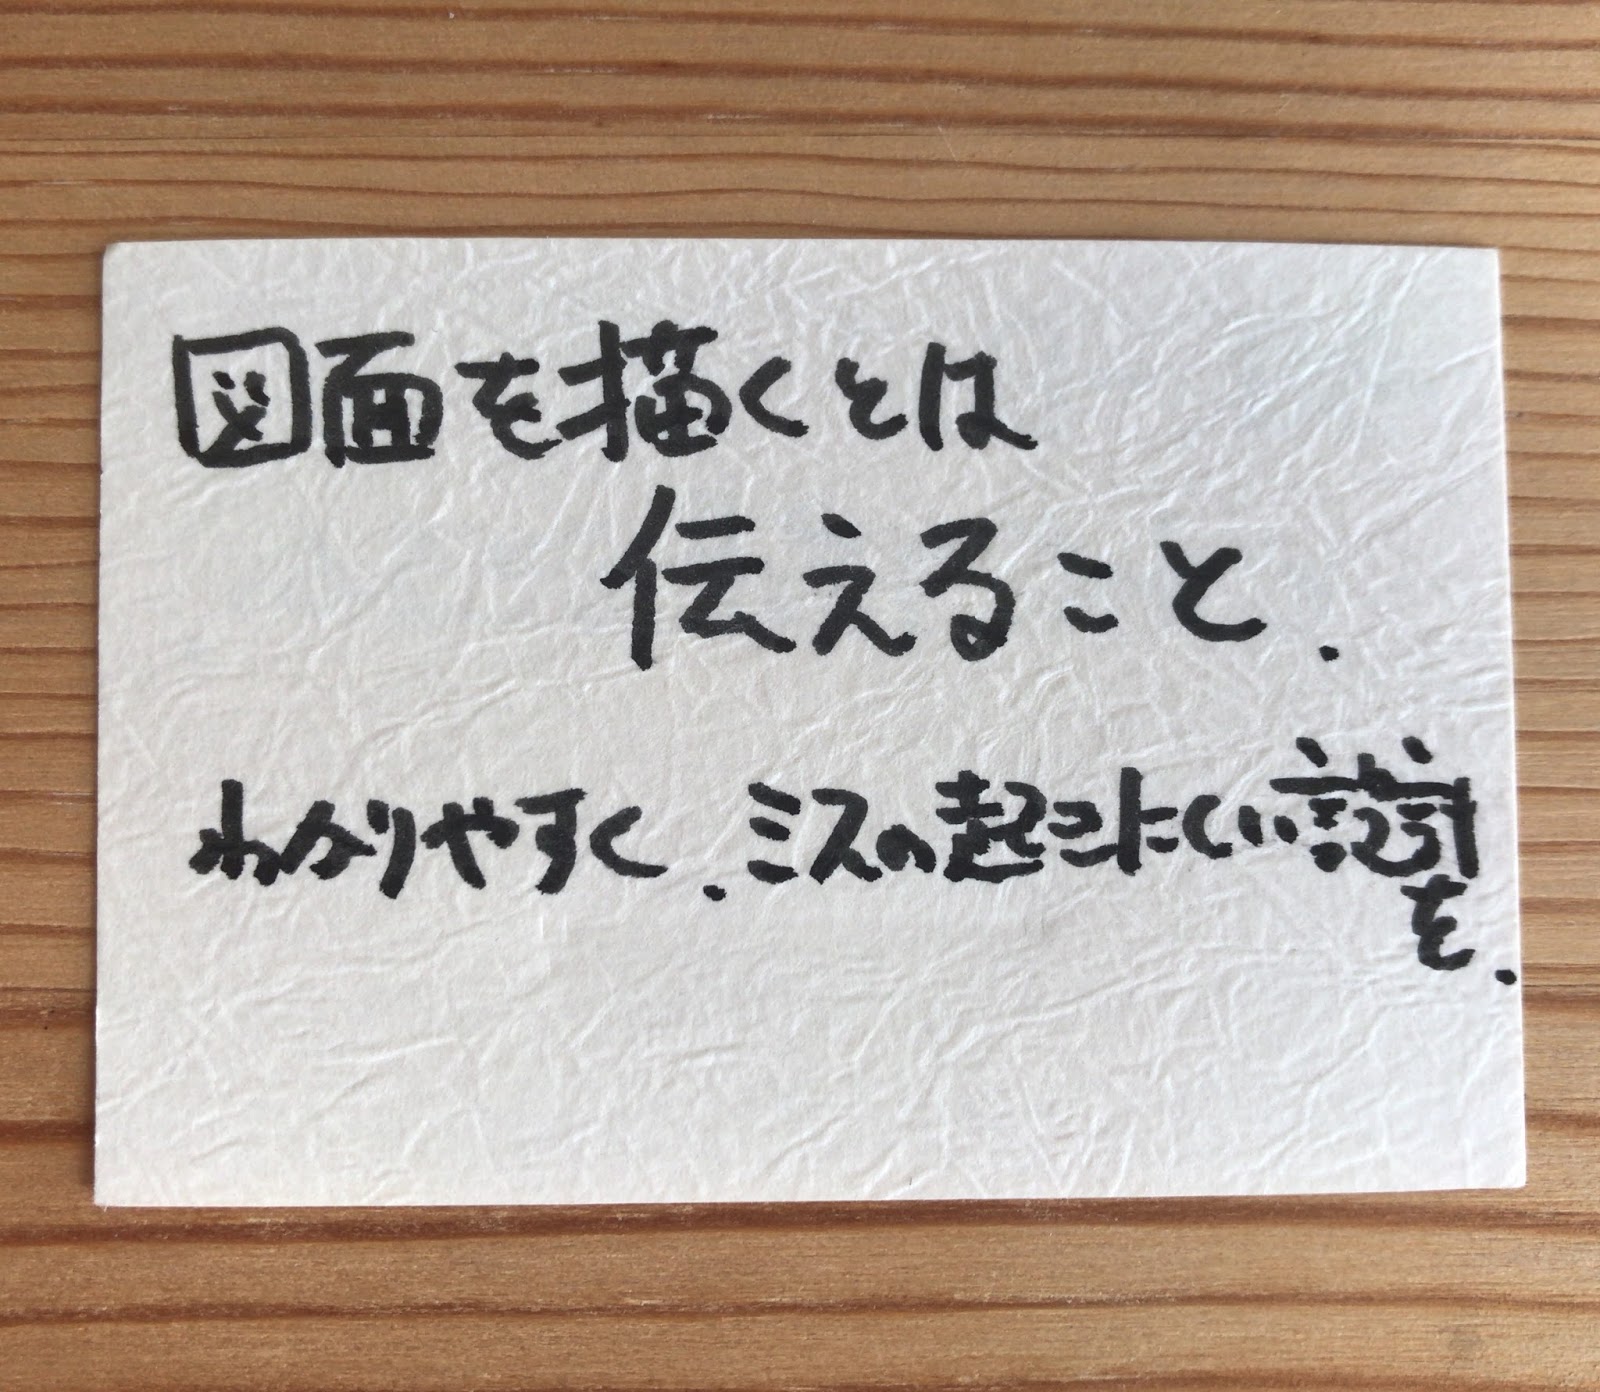 図面を描くとは
伝えること.
わかりやすく.ミスの起こりにくい
を.